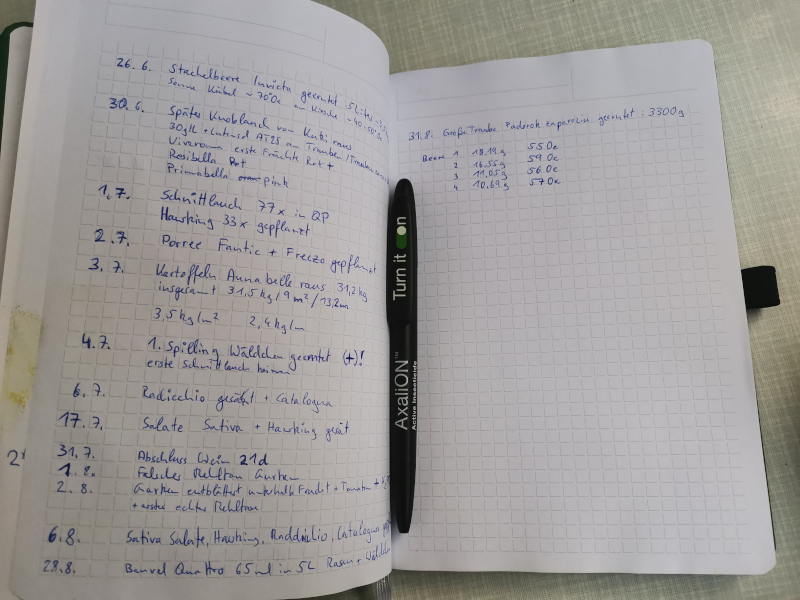 26.6. Stachelbeere Invicta geerntet 5 Liter
Sonne Kübel ~70°Oe am Kirsche ~40-50°Oe
30.6. Spätes Knoblauch von Kubi raus
30g/b + AT25 am Trauben / Tomaten
Viverona erste Früchte Rot +
Rosibella Rot
Primabella pink
1.7. Schnittlauch 77x in QP
Hawking 33x gepflanzt
2.7. Porree Fantic + Freezo gepflanzt
3.7. Kartoffeln Annabelle raus 31,2kg
insgesamt 31,5kg/9m²/13,2m
3,5kg/m² 2,4kg/m
4.7. 1. Spilling Wäldchen geerntet (+)!
erste Schnittlauch keimen
6.7. Radicchio gesät + Catalogna
17.7. Salate Sativa + Hawking gesät
31.7. Abschluss Wein 21d
1.8. Falscher Mehltau Gurken
2.8. Gurken entblättert unterhalb Frucht + Tomaten +
+ erster echter Mehltau
6.8. Sativa Salate, Hawking, Raddichio, Catalogna
28.8. Banvel Quattro 65ml in 5L Rasen + Wäldchen
Turn it on
AxaliON™
Active Insecticide
31.8. Große Traube Paderok Zaparozin geerntet: 3300g
Beere 1 18,19g 55Oe
2 16,55g 59Oe
3 11,05g 56Oe
4 10,69g 57Oe